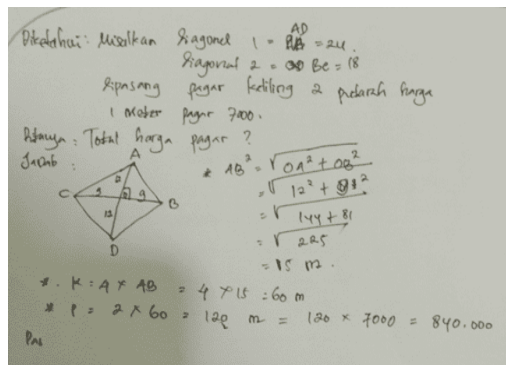 Diketahui : Misalkan diagonal 1 = AD = 24.
diagonal 2 = BC = 18
dipasang pagar keliling 2 harga
1 meter pagar 7000.
Ditanya : Total harga pagar ?
Jawab :
A
C
B
D
2
9
9
12
* AB² = √OA² + OB²
= √12² + 9²
= √144 + 81
= √225
= 15 m.
* . K = 4 × AB = 4 × 15 = 60 m
* P = 2 × 60 = 120 m = 120 × 7000 = 840.000